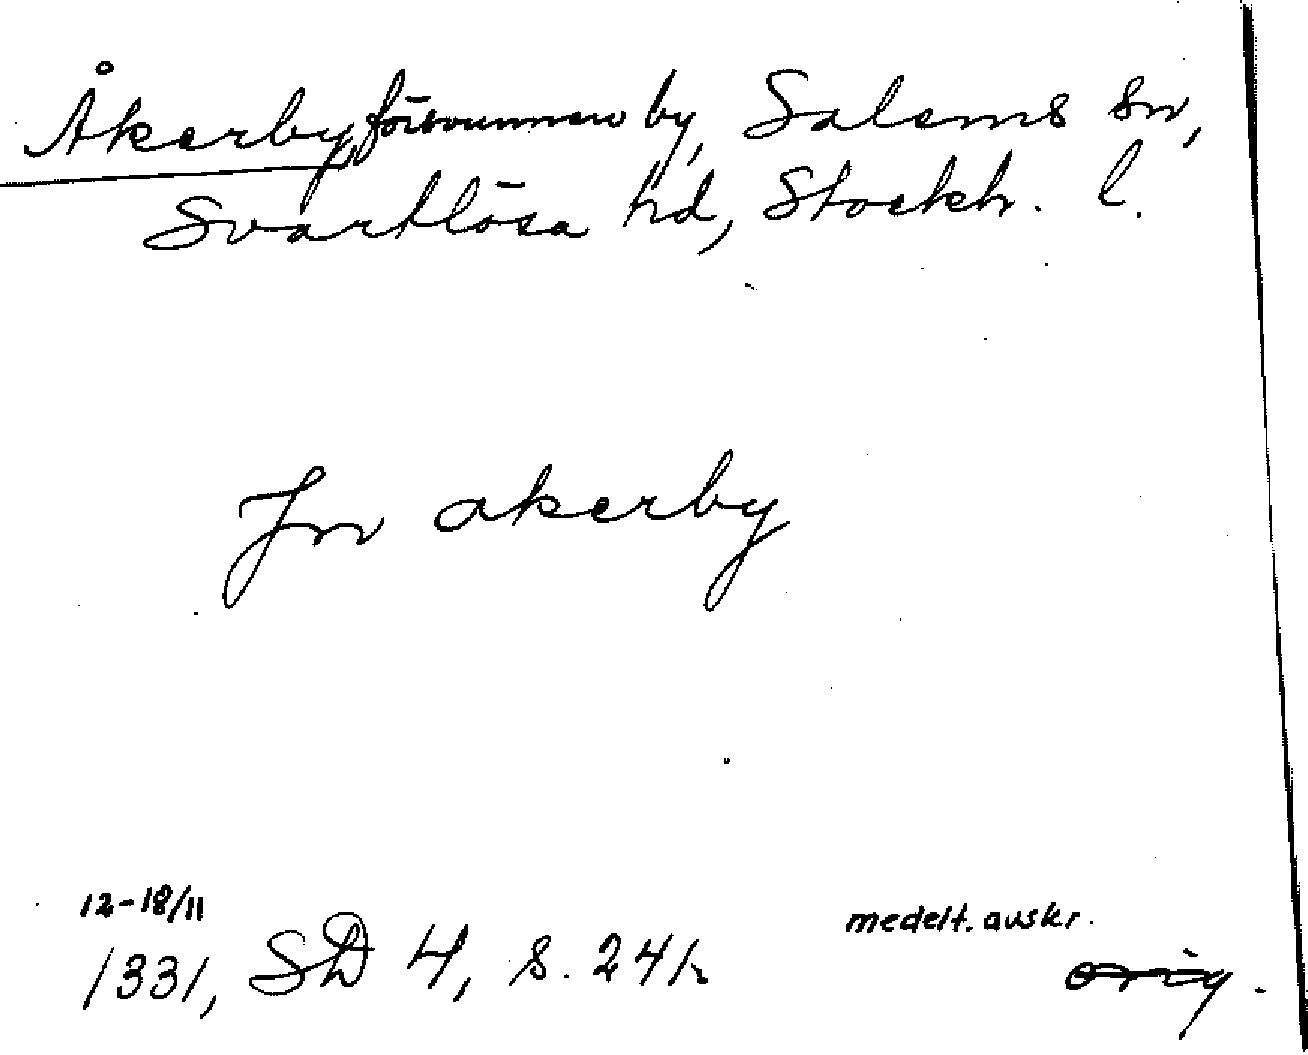 Åkerby, försvunnen by, Salems sn,
Svartlösa hd, Stockh. l.
Jn akerby
12-18/11
1331, SD 4, s. 241
medelt. avskr.
orig.